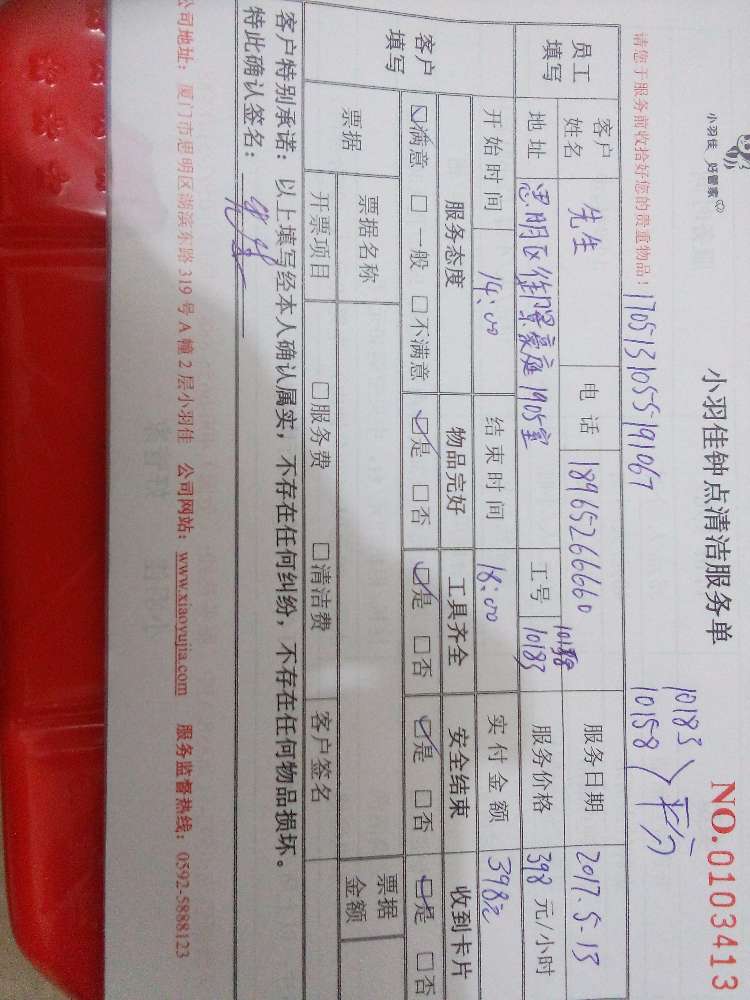 小羽佳 好管家
小羽佳钟点清洁服务单
NO.0103413
请您于服务前收拾好您的贵重物品！
1705131055191067
10183
10158
平分
员工填写
客户姓名 先生 电话 18965266660 服务日期 2017.5.13
地址 思明区御景豪庭1905室 工号 10183 服务价格 398 元/小时
客户填写
开始时间 14:00 结束时间 18:00 实付金额 398元
服务态度 物品完好 工具齐全 安全结束 收到卡片
☑满意 □一般 □不满意 ☑是 □否 ☑是 □否 ☑是 □否 ☑是 □否
票据 票据名称 票据金额
开票项目 □服务费 □清洁费 客户签名
客户特别承诺：以上填写经本人确认属实，不存在任何纠纷，不存在任何物品损坏。
特此确认签名：
公司地址：厦门市思明区湖滨东路 319 号 A 幢 2 层小羽佳 公司网站：www.xiaoyujia.com 服务监督热线：0592-5888123